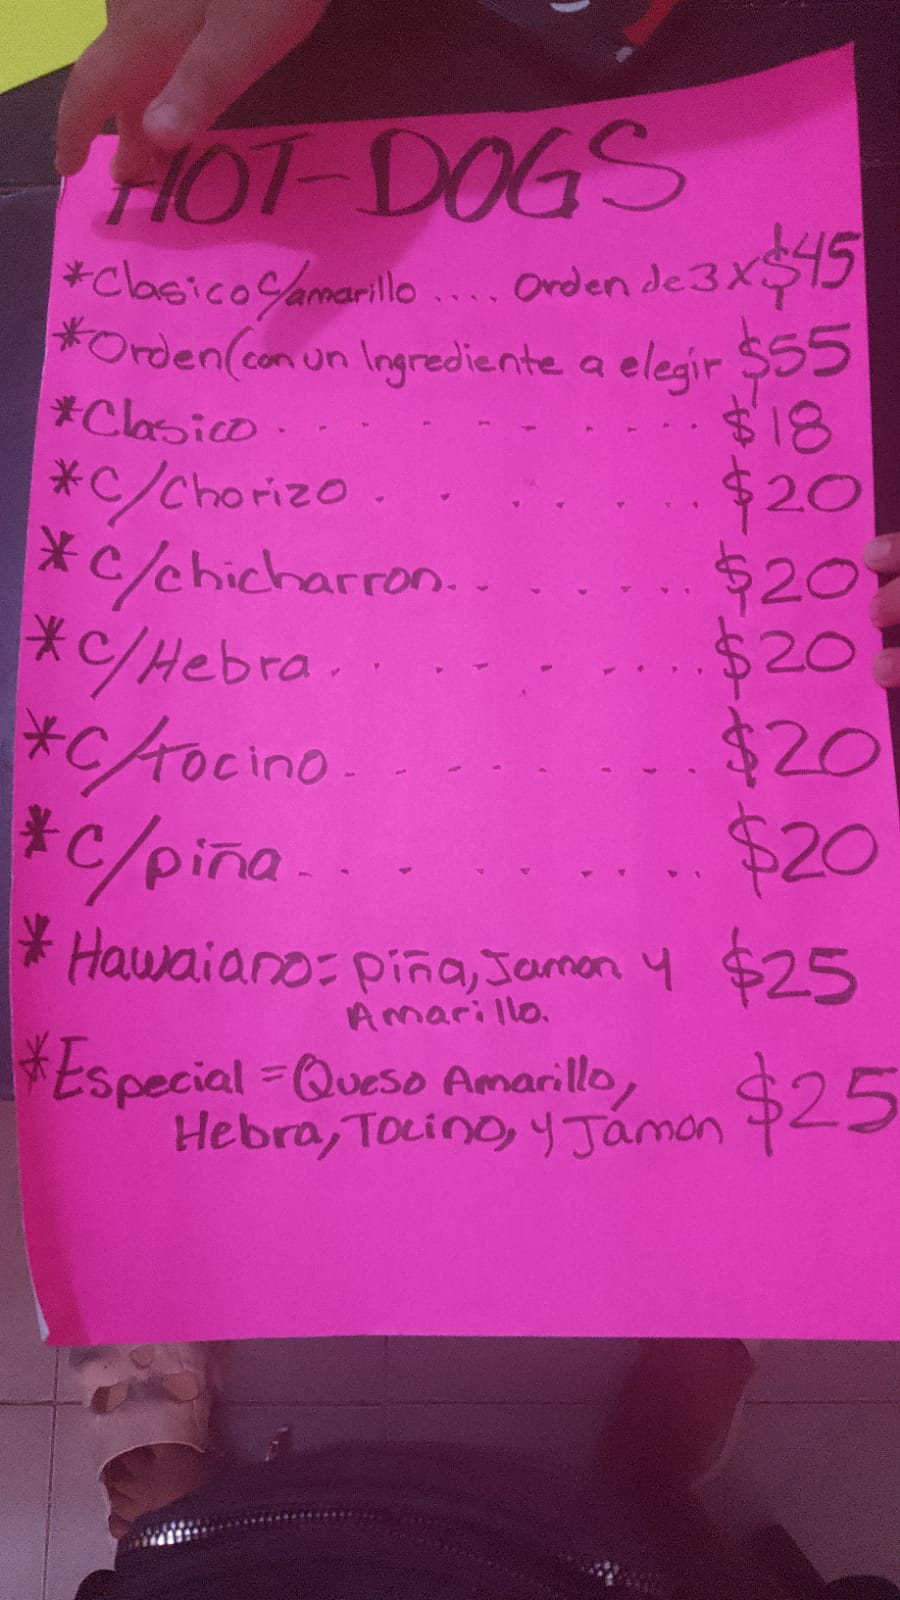 HOT-DOGS
*Clasico c/amarillo .... Orden de 3 x $45
*Orden (con un Ingrediente a elegir $55
*Clasico . . . . . . . . . . $18
*C/Chorizo . . . . . . . $20
*C/chicharron. . . . . . . . $20
*C/Hebra . . . . . . . . . $20
*C/tocino . . . . . . . . . $20
*C/piña . . . . . . . . . $20
*Hawaiano= piña, Jamon y $25
Amarillo.
*Especial = Queso Amarillo,
Hebra, Tocino, y Jamon $25